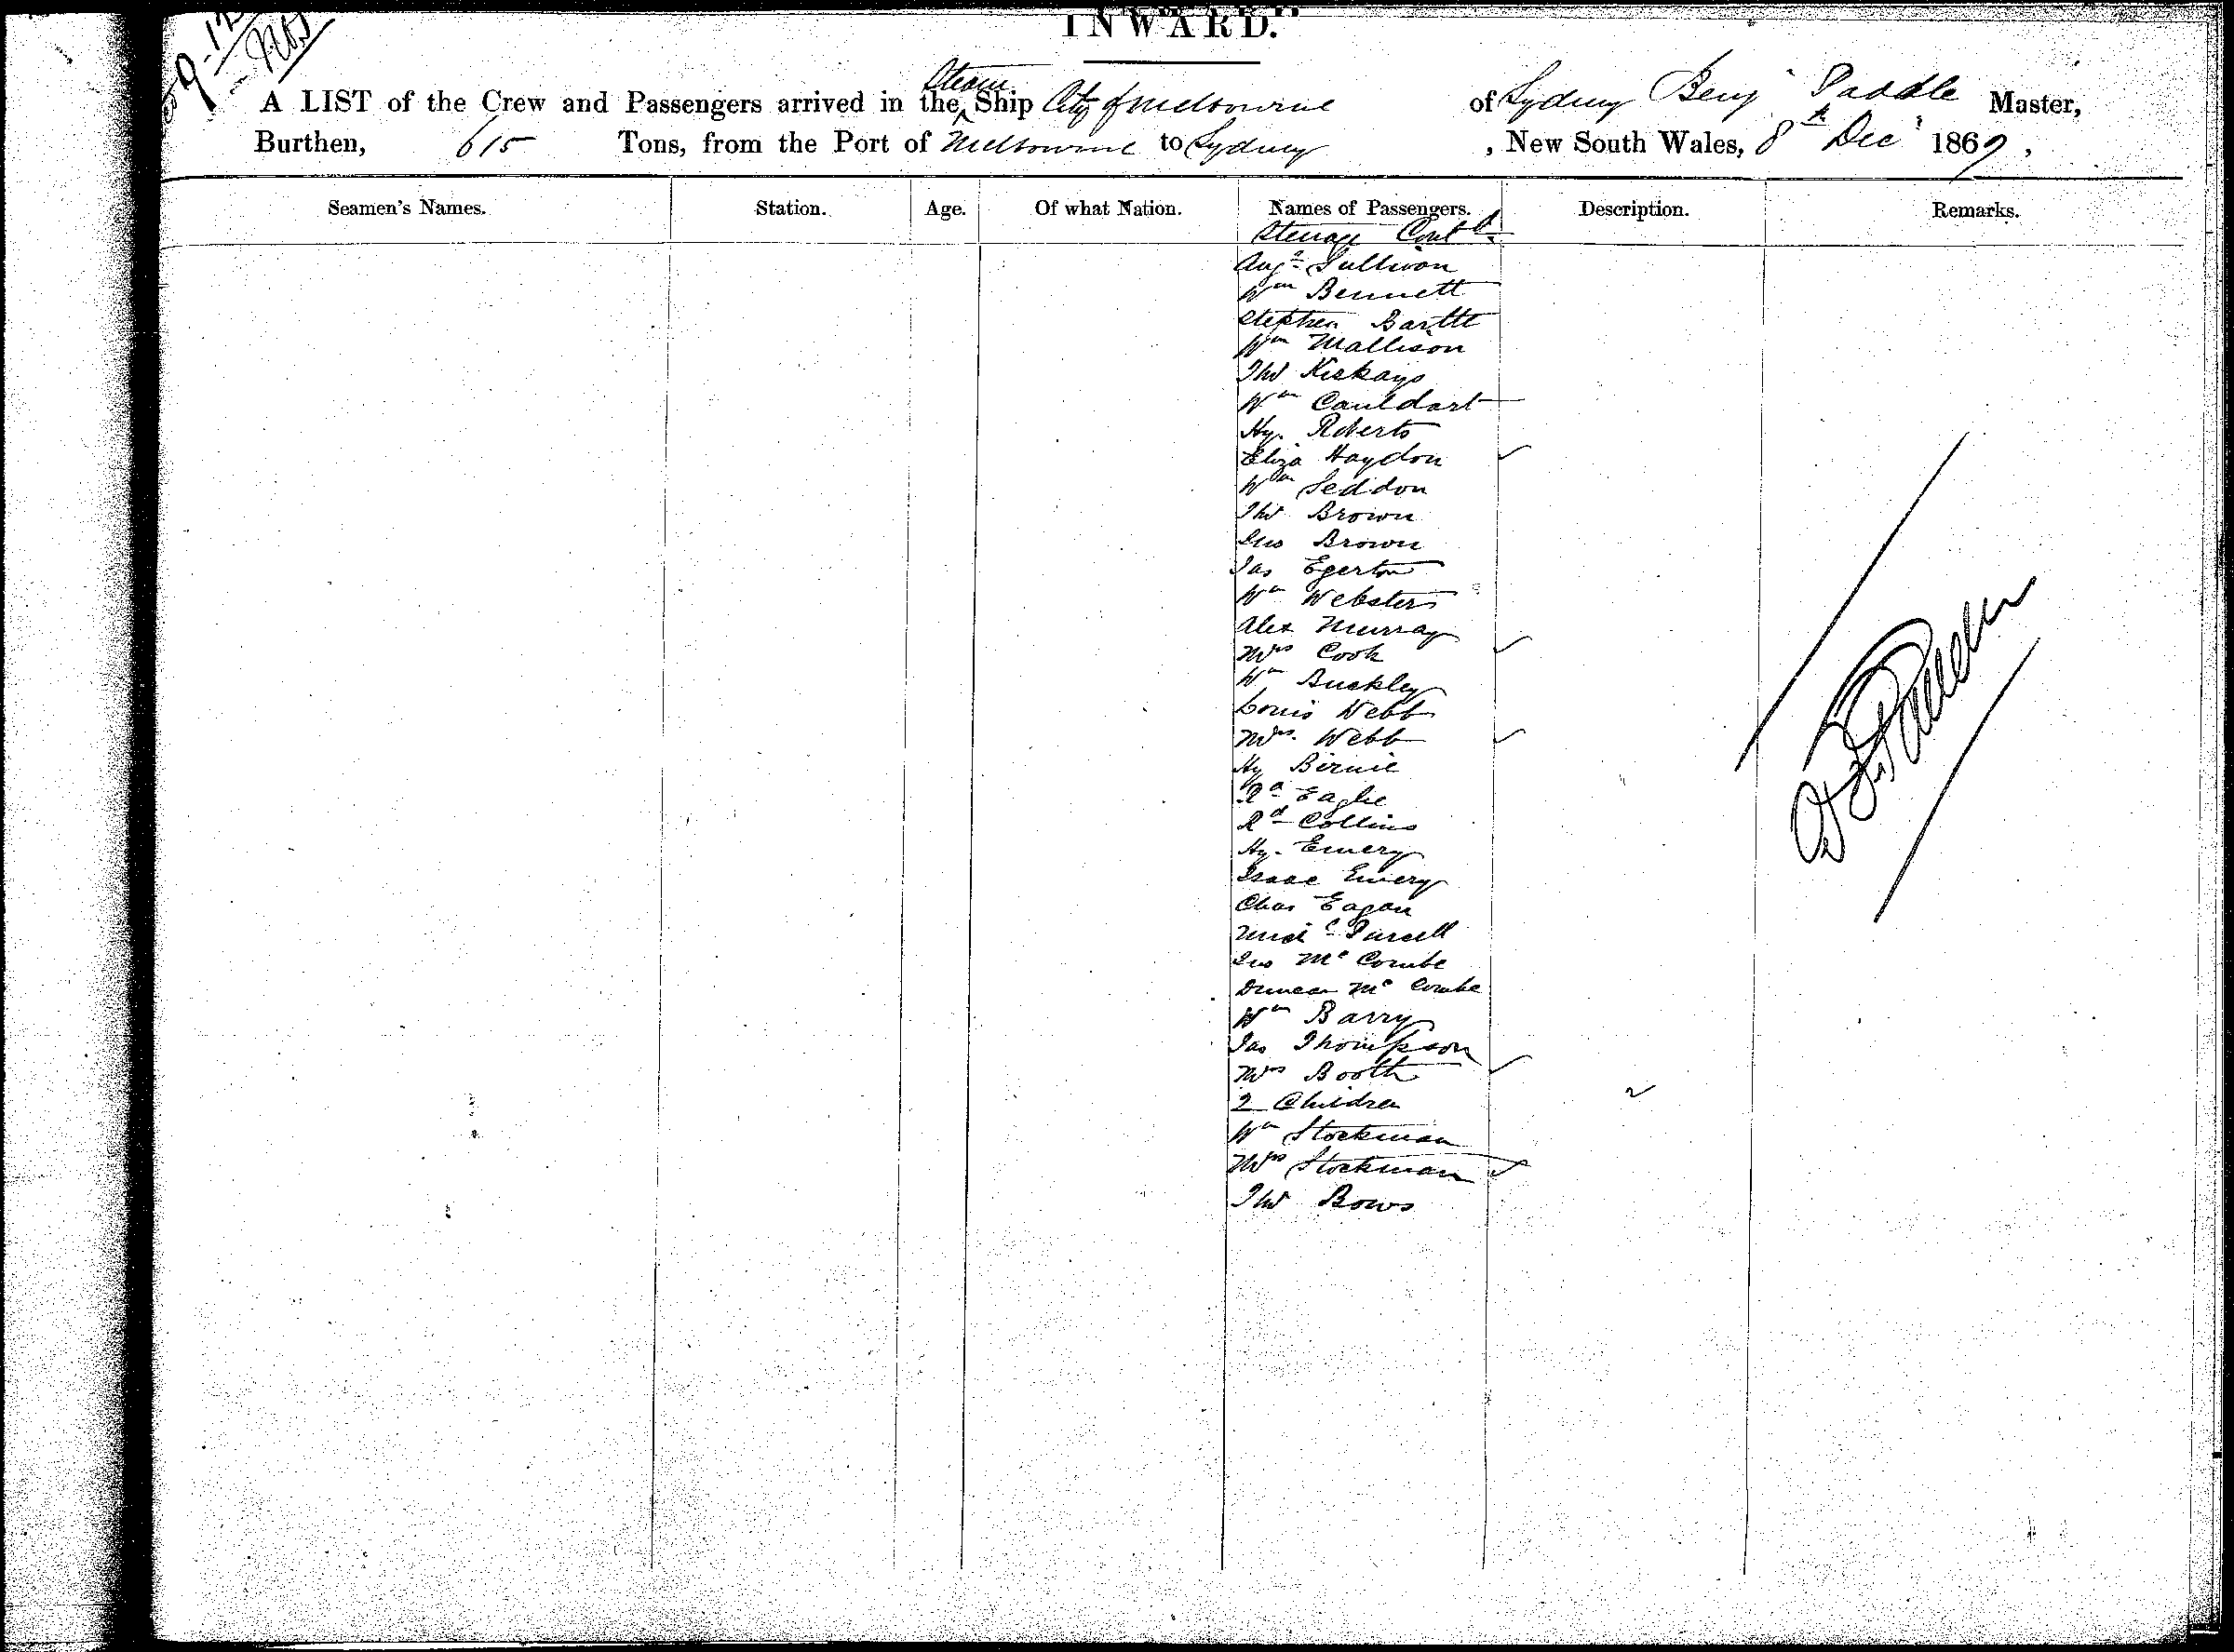 INWARD.
Steam
A LIST of the Crew and Passengers arrived in the Ship City of Melbourne of Sydney Benj Paddle Master,
Burthen, 615 Tons, from the Port of Melbourne to Sydney, New South Wales, 8th Dec 1869,
Seamen's Names. Station. Age. Of what Nation. Names of Passengers. Description. Remarks.
Steerage Contd
Augs Sullivan
Wm Bennett
Stephen Bartlt
Wm Mallison
Thos
Wm Cauldart
Hy. Roberts
Eliza Haydon
Wm Seddon
Thos Brown
Jno Brown
Jas Egerton
Wm Webster
Alex Murray
Mrs Cook
Wm Buckley
Louis Webb
Mrs. Webb
Hy Birnie
Rd Eagle
Rd Collins
Hy. Emery
Isaac Emery
Chas Eagan
Michl Purcell
Jno McCombe
Duncan McCombe
Wm Barry
Jas Thompson
Mrs Booth
2 Children 2
Wm Stockman
Mrs Stockman
Thos Bows